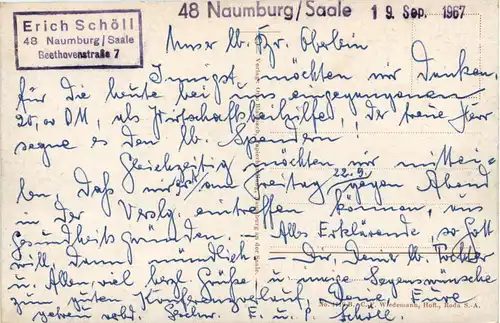 Erich Schöll
48 Naumburg/Saale
Beethovenstraße 7
48 Naumburg/Saale 19. Sep. 1967
Unser lb. Br. Oberbin
Innigst möchten wir Danken
für die heute bei uns eingegangenen
20,00 DM, als Wirtschaftsbeihilfen, der treue Herr
segne es den lb. Spendern!
Gleichzeitig möchten wir mittei-
len, daß wir erst am Freitag 22.9. gegen Abend
in der Verslg. eintreffen können, aus
Gesundheitsgründen. – Alles Erklärende, so Gott
will, dann mündlich – Dir, Deiner lb. Tochter
u. Allen, viel herzl. Grüße u. innige Segenswünsche
zum guten Konferenzverlauf, Deine, Eure
getreu verb. E. u. P. Schöll.
C. Wiedemann, Hofl., Roda S.-A.